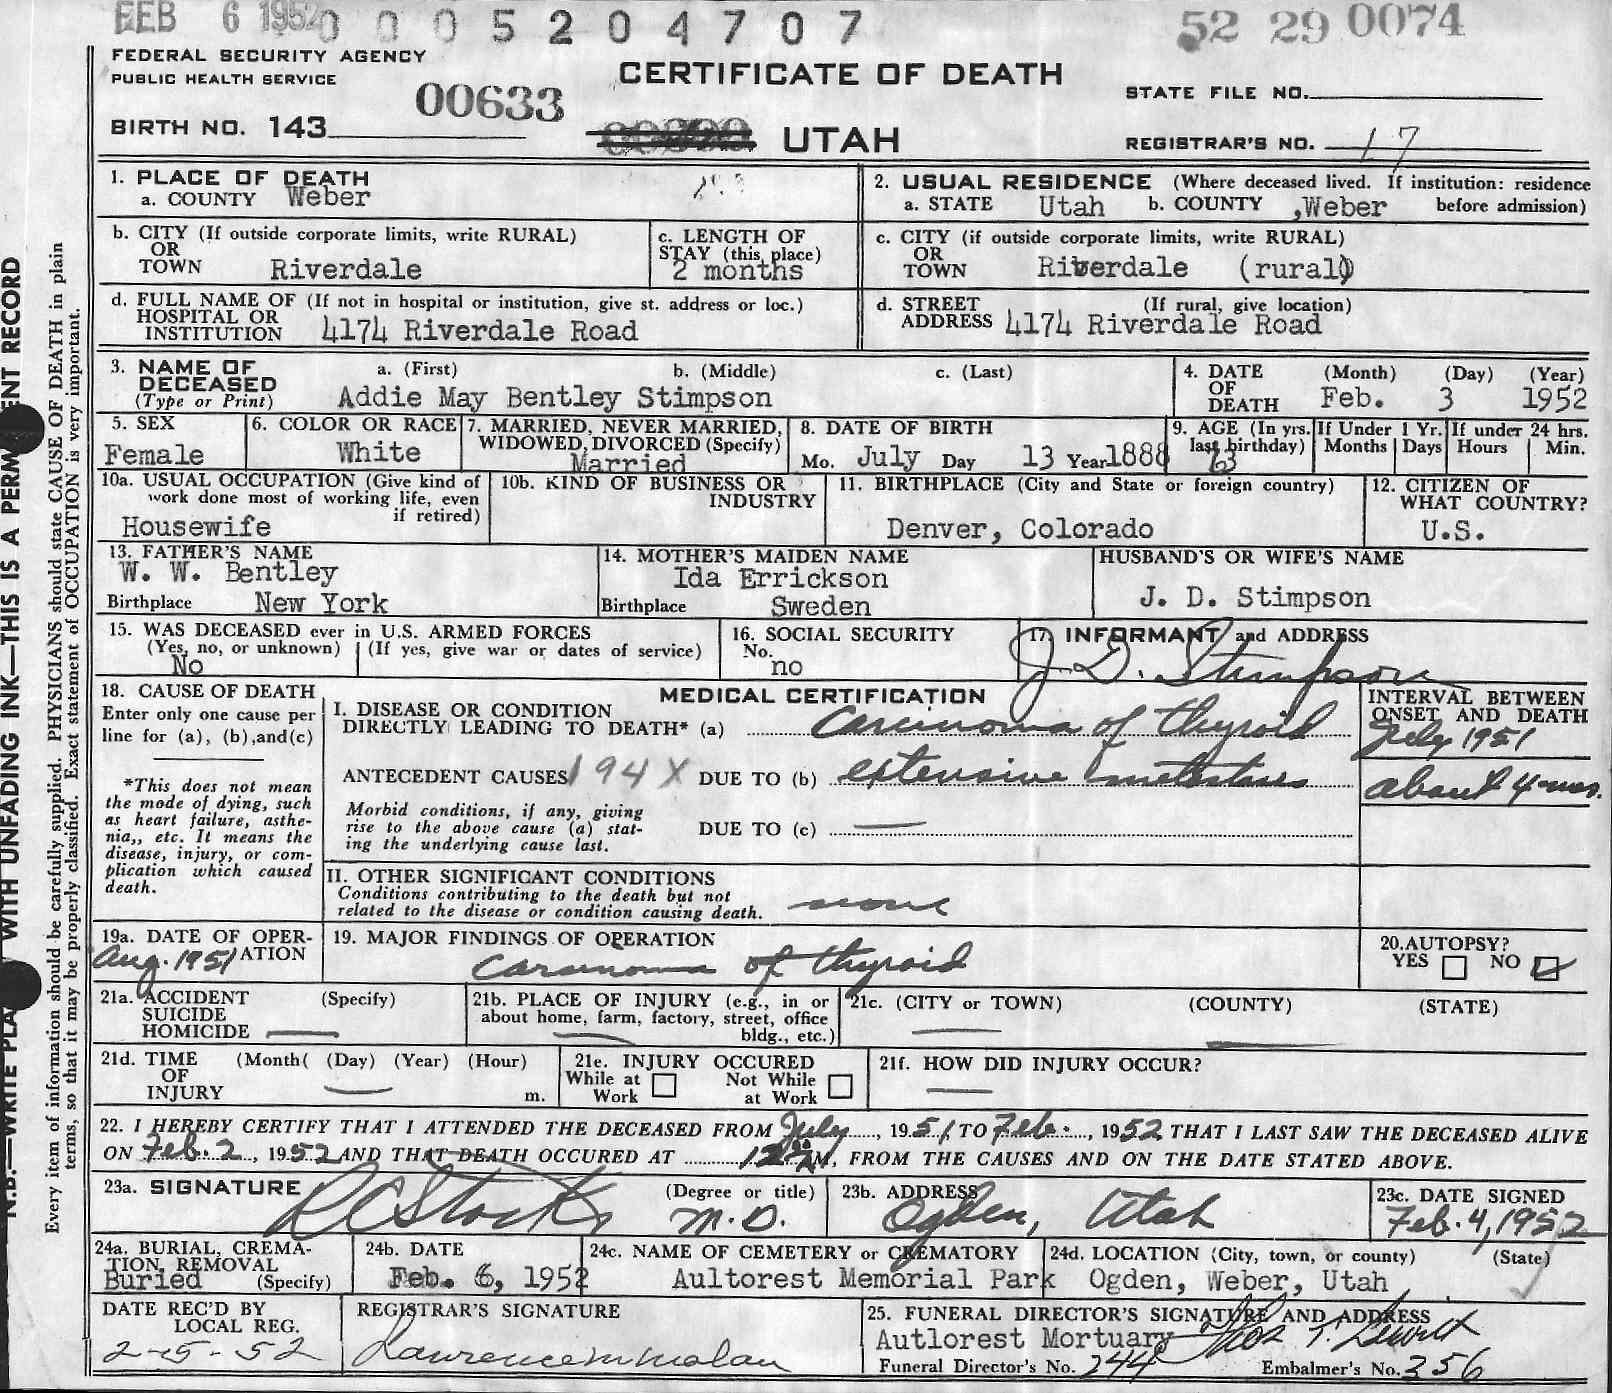 FEB 6 1952 0 0 0 5 2 0 4 7 0 7 52 29 0074
FEDERAL SECURITY AGENCY
PUBLIC HEALTH SERVICE
CERTIFICATE OF DEATH
STATE FILE NO.
00633
BIRTH NO. 143
UTAH
REGISTRAR'S NO. 17
1. PLACE OF DEATH
a. COUNTY Weber
2. USUAL RESIDENCE (Where deceased lived. If institution: residence
a. STATE Utah b. COUNTY ,Weber before admission)
b. CITY (If outside corporate limits, write RURAL)
OR
TOWN Riverdale
c. LENGTH OF
STAY (this place)
2 months
c. CITY (if outside corporate limits, write RURAL)
OR
TOWN Riverdale (rural)
d. FULL NAME OF (If not in hospital or institution, give st. address or loc.)
HOSPITAL OR
INSTITUTION 4174 Riverdale Road
d. STREET (If rural, give location)
ADDRESS 4174 Riverdale Road
3. NAME OF a. (First) b. (Middle) c. (Last)
DECEASED
(Type or Print) Addie May Bentley Stimpson
4. DATE (Month) (Day) (Year)
OF
DEATH Feb. 3 1952
5. SEX
Female
6. COLOR OR RACE
White
7. MARRIED, NEVER MARRIED,
WIDOWED, DIVORCED (Specify)
Married
8. DATE OF BIRTH
Mo. July Day 13 Year 1888
9. AGE (In yrs.
last birthday)
63
If Under 1 Yr.
Months Days
If under 24 hrs.
Hours Min.
10a. USUAL OCCUPATION (Give kind of
work done most of working life, even
if retired)
Housewife
10b. KIND OF BUSINESS OR
INDUSTRY
11. BIRTHPLACE (City and State or foreign country)
Denver, Colorado
12. CITIZEN OF
WHAT COUNTRY?
U.S.
13. FATHER'S NAME
W. W. Bentley
Birthplace New York
14. MOTHER'S MAIDEN NAME
Ida Errickson
Birthplace Sweden
HUSBAND'S OR WIFE'S NAME
J. D. Stimpson
15. WAS DECEASED ever in U.S. ARMED FORCES
(Yes, no, or unknown) (If yes, give war or dates of service)
No
16. SOCIAL SECURITY
No.
no
17. INFORMANT and ADDRESS
J. D. Stimpson
18. CAUSE OF DEATH
Enter only one cause per
line for (a), (b), and (c)
*This does not mean
the mode of dying, such
as heart failure, asthe-
nia,, etc. It means the
disease, injury, or com-
plication which caused
death.
MEDICAL CERTIFICATION
I. DISEASE OR CONDITION
DIRECTLY LEADING TO DEATH* (a) Carcinoma of thyroid
ANTECEDENT CAUSES 194X DUE TO (b) extensive metastases
Morbid conditions, if any, giving
rise to the above cause (a) stat-
ing the underlying cause last.
DUE TO (c) —
INTERVAL BETWEEN
ONSET AND DEATH
July 1951
about 4 mos.
II. OTHER SIGNIFICANT CONDITIONS
Conditions contributing to the death but not
related to the disease or condition causing death. none
19a. DATE OF OPER-
ATION
Aug. 1951
19. MAJOR FINDINGS OF OPERATION
Carcinoma of thyroid
20. AUTOPSY?
YES NO
21a. ACCIDENT (Specify)
SUICIDE
HOMICIDE —
21b. PLACE OF INJURY (e.g., in or
about home, farm, factory, street, office
bldg., etc.)
21c. (CITY or TOWN) (COUNTY) (STATE)
21d. TIME (Month( (Day) (Year) (Hour)
OF
INJURY m.
21e. INJURY OCCURED
While at Work Not While at Work
21f. HOW DID INJURY OCCUR?
22. I HEREBY CERTIFY THAT I ATTENDED THE DECEASED FROM July, 1951, TO Feb., 1952 THAT I LAST SAW THE DECEASED ALIVE
ON Feb. 2, 1952 AND THAT DEATH OCCURED AT 12 AM, FROM THE CAUSES AND ON THE DATE STATED ABOVE.
23a. SIGNATURE (Degree or title)
M.D.
23b. ADDRESS
Ogden, Utah
23c. DATE SIGNED
Feb. 4, 1952
24a. BURIAL, CREMA-
TION, REMOVAL
Buried (Specify)
24b. DATE
Feb. 6, 1952
24c. NAME OF CEMETERY or CREMATORY
Aultorest Memorial Park
24d. LOCATION (City, town, or county) (State)
Ogden, Weber, Utah
DATE REC'D BY
LOCAL REG.
2-5-52
REGISTRAR'S SIGNATURE
Lawrence M Malan
25. FUNERAL DIRECTOR'S SIGNATURE AND ADDRESS
Autlorest Mortuary
Funeral Director's No. 244 Embalmer's No. 356
Every item of information should be carefully supplied. PHYSICIANS should state CAUSE OF DEATH in plain
terms, so that it may be properly classified. Exact statement of OCCUPATION is very important.
N.B.—WRITE PLA WITH UNFADING INK—THIS IS A PERM ENT RECORD